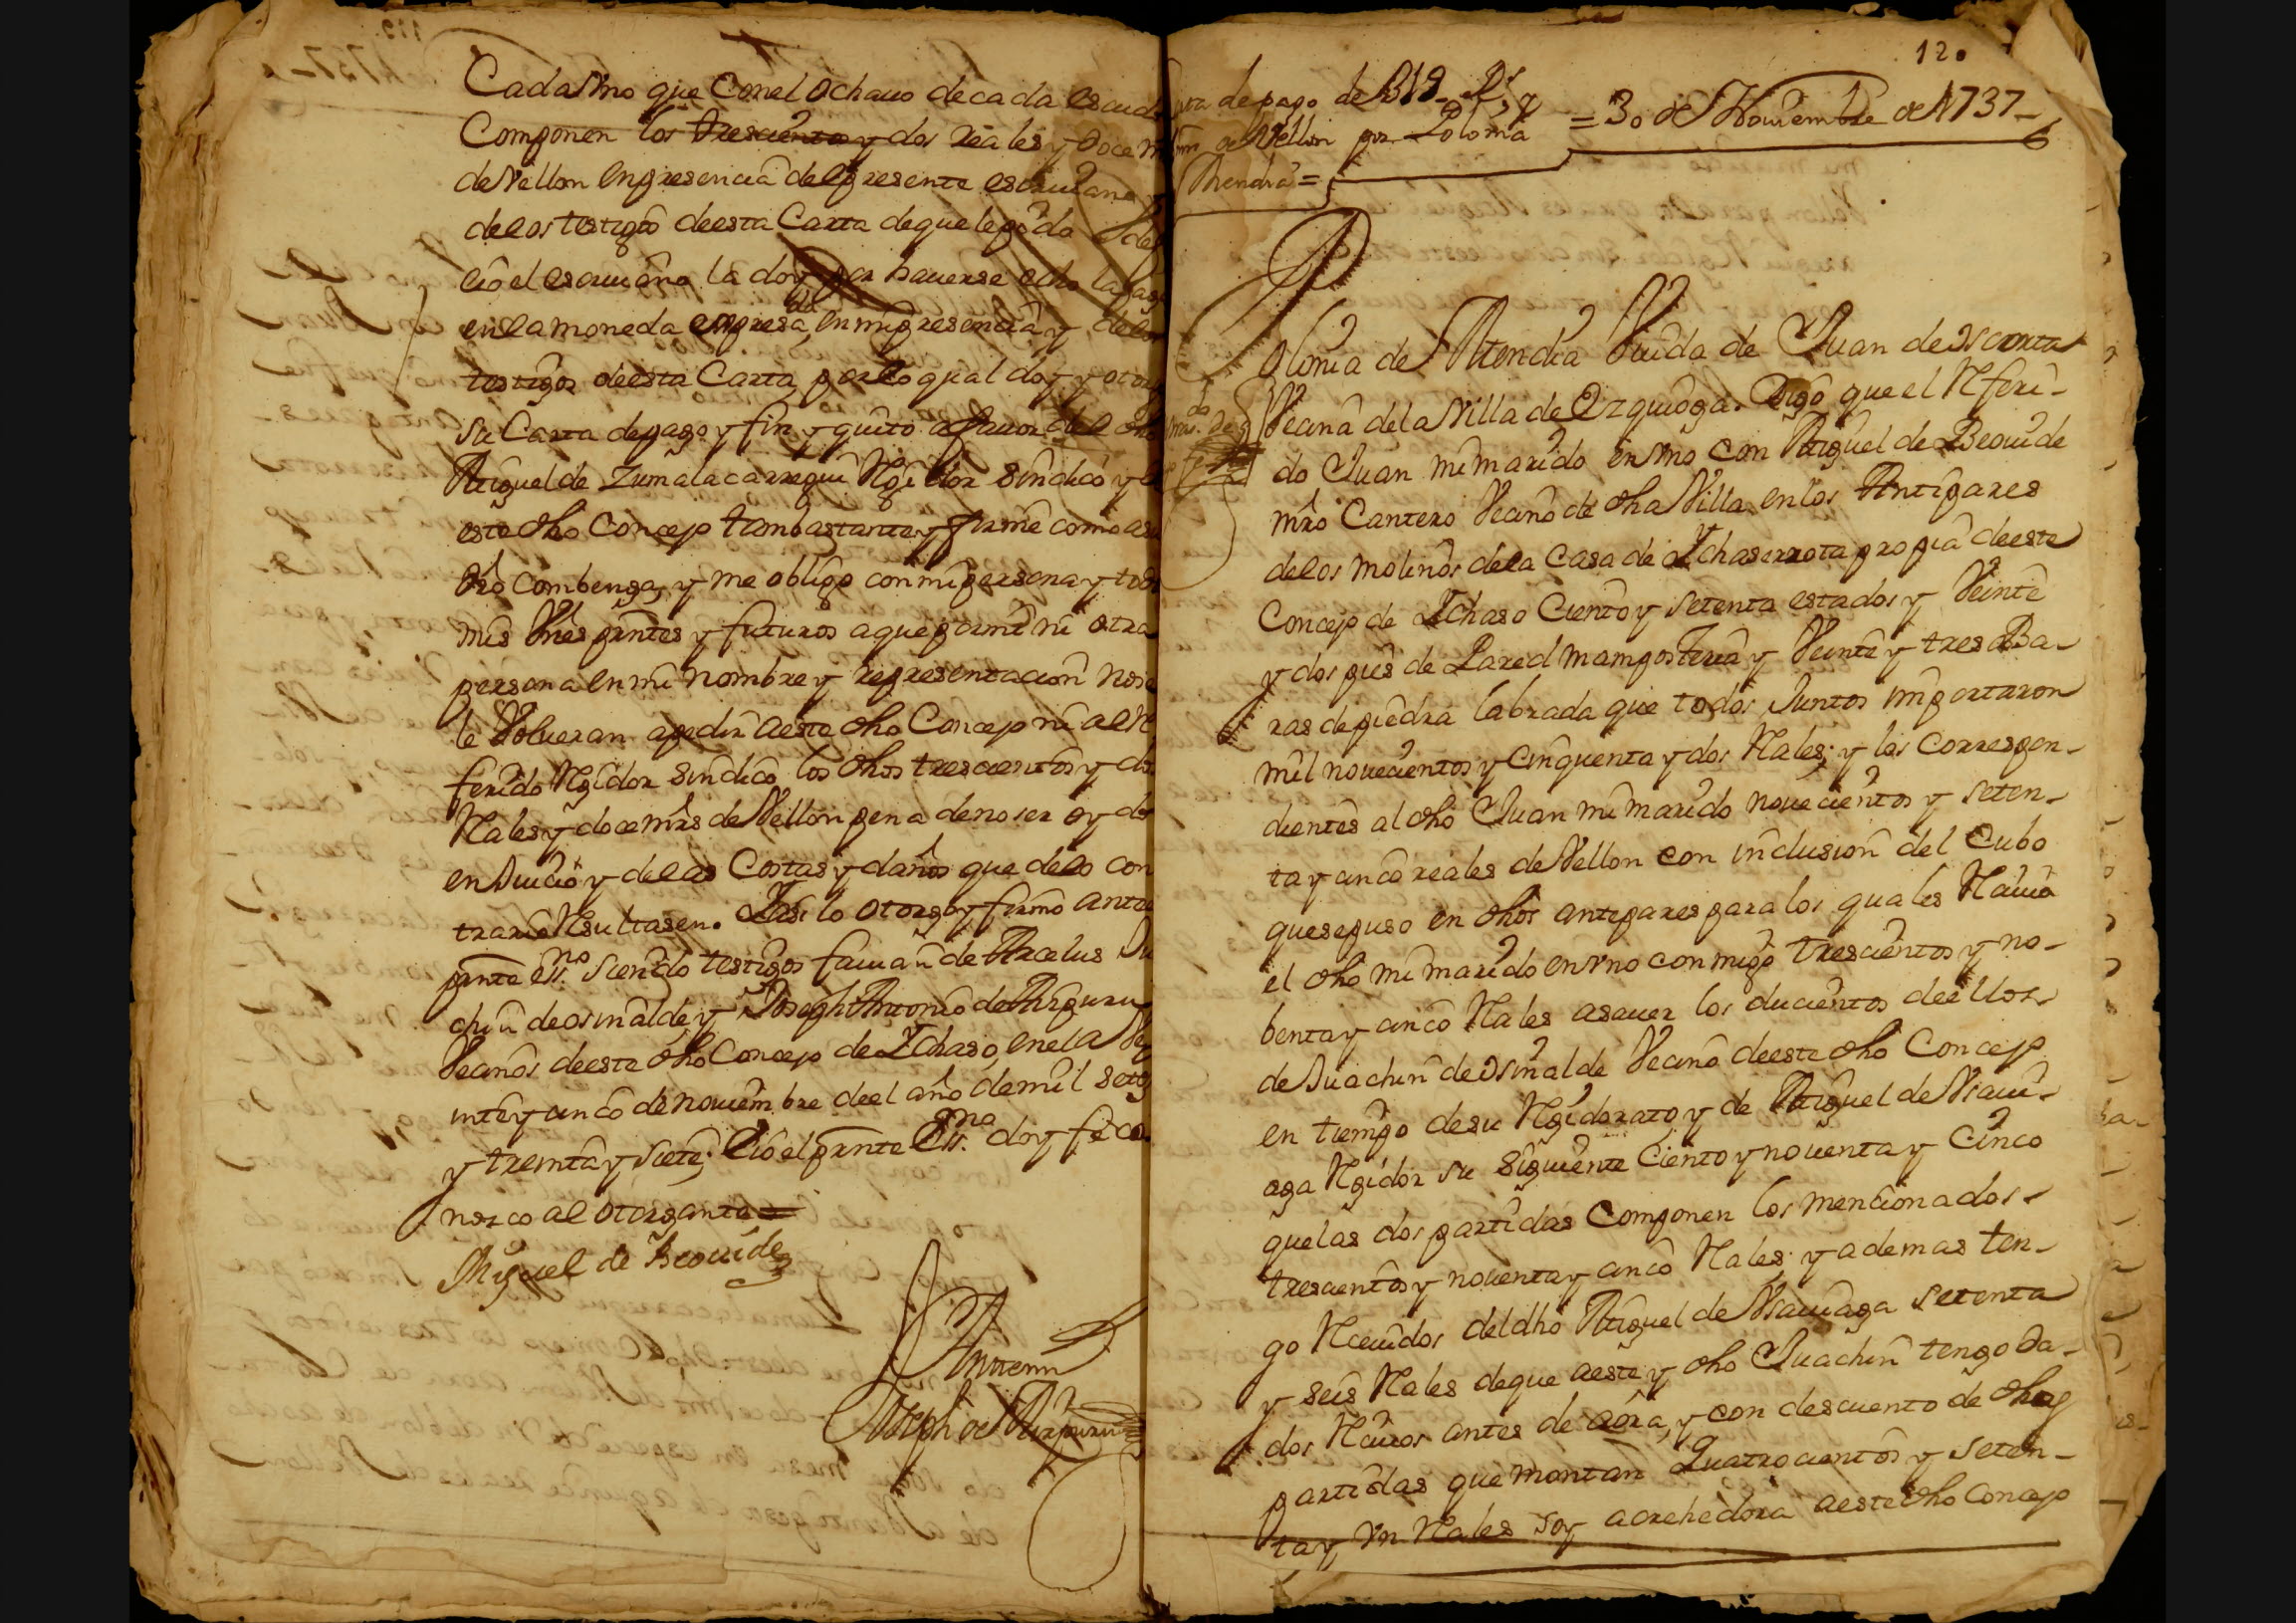 Cada Vno que Con el Ochauo de cada escud
Componen los trescientos y dos reales y doce m
de Vellon en presencia del presente escriuano y
de los testigos de esta Carta de que le pido de fe
e io el escriuano la doy por hauerse echo la paga
en la moneda expresada, en mi presencia y de los
testigos de esta Carta, por lo qual doy y otorg
su Carta de pago y fin y quito a fauor del dho
Miguel de Zumalacarregui Rexidor Sindico y
este dho Concejo tam bastante y firme como a su
dro combenga, y me obligo con mi persona y todos
mis Vnes prntes y futuros a que por mi ni otra
persona en mi nombre y representacion no se
le Volueran a pedir a este dho Concejo ni al Re
ferido Rexidor Sindico los dhos trescientos y dos
Rales y doce mrs de Vellon pena de no ser oydo
en Juicio y de las Costas y daños que de lo con
trario Resultasen. Y asi lo otorgo y firmo ante
prnte essno. Siendo testigos Fauian de Arcelus Jua
chin de osinalde y Joseph Antonio de Aizpuru
Vecinos de este dho Concejo de Ychaso, en el a Ve
inte y cinco de nouiembre de el año de mil sete
y treinta y siete; E io el prnte Essno. doy fe co
nozco al otorgante =
Miguel de Beouide
Antemi
Joseph de Aizpuru
120
Carta de pago de 819 Rs y
mrs de Vellon por Polonia = 30 de Nouiembre de 1737
Mendia =
Polonia de Mendia Viuda de Juan de
Vecina de la Villa de Ezquioga. Digo que el Referi-
do Juan mi marido en vno con Miguel de Beouide
mro Cantero Vecino de dha Villa, en los Antepares
de los molinos de la Casa de Ychaserrota propia de este
Concejo de Ychaso Ciento y setenta estados y Veinte
y dos pies de Pared mamposteria y Veinte y tres Ba-
ras de piedra labrada que todos Juntos importaron
mil nouecientos y cinquenta y dos Rales; y los correspon-
dientes al dho Juan mi marido nouecientos y seten-
ta y cinco reales de Vellon con inclusion del Cubo
que se puso en dhos antepares para los quales Reciuio
el dho mi marido en vno conmigo trescientos y no-
benta y cinco Rales a sauer los ducientos de ellos
de Juachin de Osinalde Vecino de este dho Concejo
en tiempo de su Rexidorato y de Miguel de Vsaui-
aga Rexidor su siguiente Ciento y nouenta y Cinco
que las dos partidas Componen los mencionados
trescientos y nouenta y cinco Rales; y ademas ten-
go Reciuidos del dho Miguel de Vsauiaga setenta
y seis Rales de que a este y dho Juachin tengo da-
dos Reciuos antes de aora, y con descuento de dhas
partidas que montan Quatrocientos y seten-
ta y Vn Rales soy acrehedora a este dho Concejo